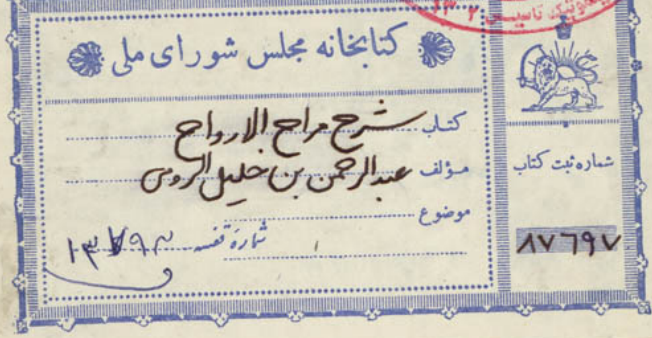 کتابخانه مجلس شورای ملی
کتاب شرح مراح الارواح
مؤلف عبدالرحمن بن خلیل الرومی
موضوع
شماره قفسه ۱۳۷۹۲
شماره ثبت کتاب
۸۷۶۹۷